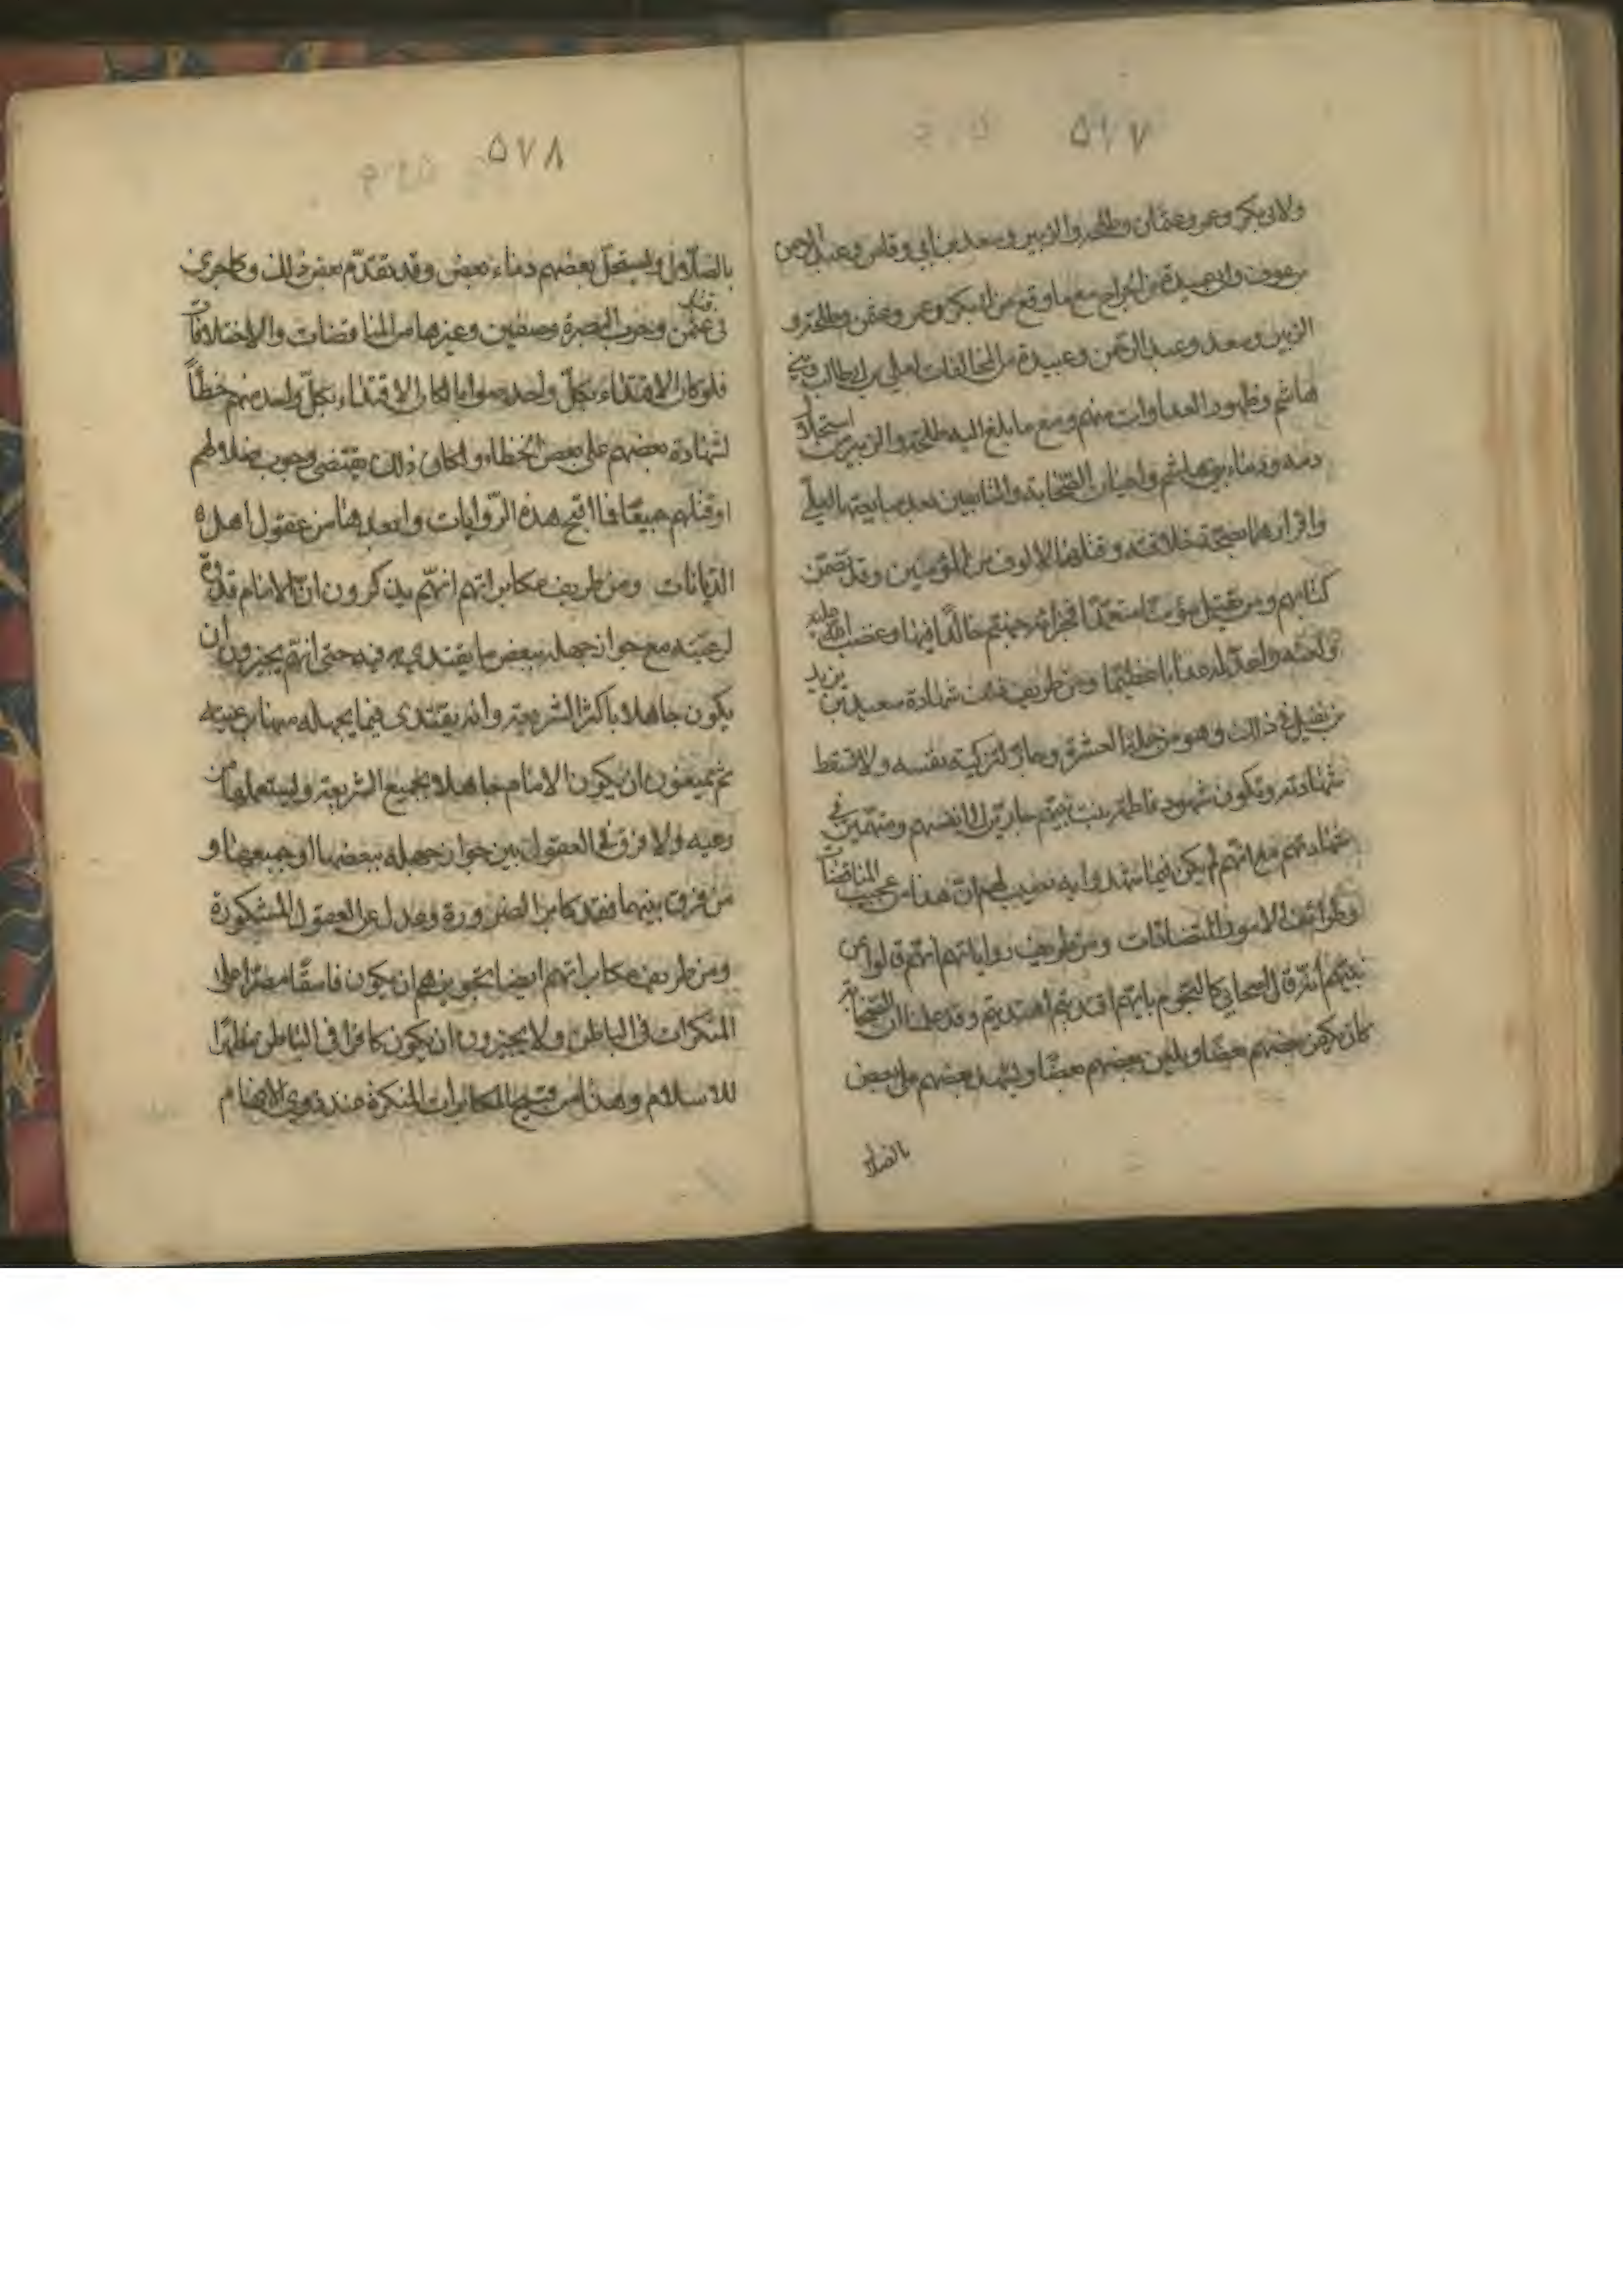 ٥٧٧
ولابى بكر وعمر وعثمان وطلحة والزبير وسعد بن ابي وقاص وعبد الرحمن
بن عوف وابى عبيدة بن الجراح مع ما وقع من ابى بكر وعمر وعثمن وطلحة و
الزبير وسعد وعبد الرحمن وعبيدة من المخالفات لعلي بن ابي طالب وبني
هاشم وظهور العداوات منهم ومع ما بلغ اليه طلحة والزبير من استحلال
دمه ودماء بني هاشم واعيان الصحابة والتابعين بعد مبايعتهما لعلي
واقرارهما بصحة خلافته وقتلهما الالوف من المؤمنين وقد تضمن
كتابهم ومن يقتل مؤمنا متعمدا فجزائه جهنم خالدا فيها وغضب الله عليه
ولعنه واعد له عذابا عظيما ومن طريف ذلك شهادة سعيد بن يزيد
بن نفيل في ذلك وهو من جملة العشرة وجاز تزكيته نفسه ولا تسقط
شهادته وتكون شهود فاطمة بنت نبيهم جارين الى انفسهم ومتهمين في
شهادتهم مع انهم لم يكن فيما شهدوا به نصيب لهم ان هذا من عجيب المناقضات
وطرائف الامور المتضادات ومن طريف رواياتهم انهم قالوا عن
نبيهم انه قال اصحابي كالنجوم بايهم اقتديتم اهتديتم وقد علمنا ان الصحابة
كان يكفر بعضهم بعضا ويلعن بعضهم بعضا ويشهد بعضهم على بعض
بالضلا
٥٧٨
بالضلال ويستحل بعضهم دماء بعض وقد تقدم بعض ذلك وكما جرى
فى قتل عثمن وحرب البصرة وصفين وغيرها من المناقضات والاختلافات
فلو كان الاقتداء بكل واحد صوابا لكان الاقتداء بكل واحد منهم خطأ
لشهادة بعضهم على بعض بالخطاء ولكان ذلك يقتضى وجوب ضلالهم
او قتلهم جميعا فما اقبح هذه الروايات وابعدها من عقول اهل
الديانات ومن طريف مكابراتهم انهم يذكرون ان الامام قدوة
لرعيته مع جواز جهله ببعض ما يقتدى به فيه حتى انهم يجيزون ان
يكون جاهلا باكثر الشريعة وانه يقتدى فيما يجهله منها برعيته
ثم يمنعون ان يكون الامام جاهلا بجميع الشريعة ويستعملها من
رعيه ولا فرق في العقول بين جواز جهله ببعضها او جميعها و
من فرق بينهما فقد كابر الضرورة وعدل عن العقول المشكورة
ومن طريف مكابراتهم ايضا تجويزهم ان يكون فاسقا مصرا على
المنكرات فى الباطن ولا يجيزون ان يكون كافرا فى الباطن مظهرا
للاسلام وهذا من قبيح المكابرات المنكرة عند ذوي الافهام